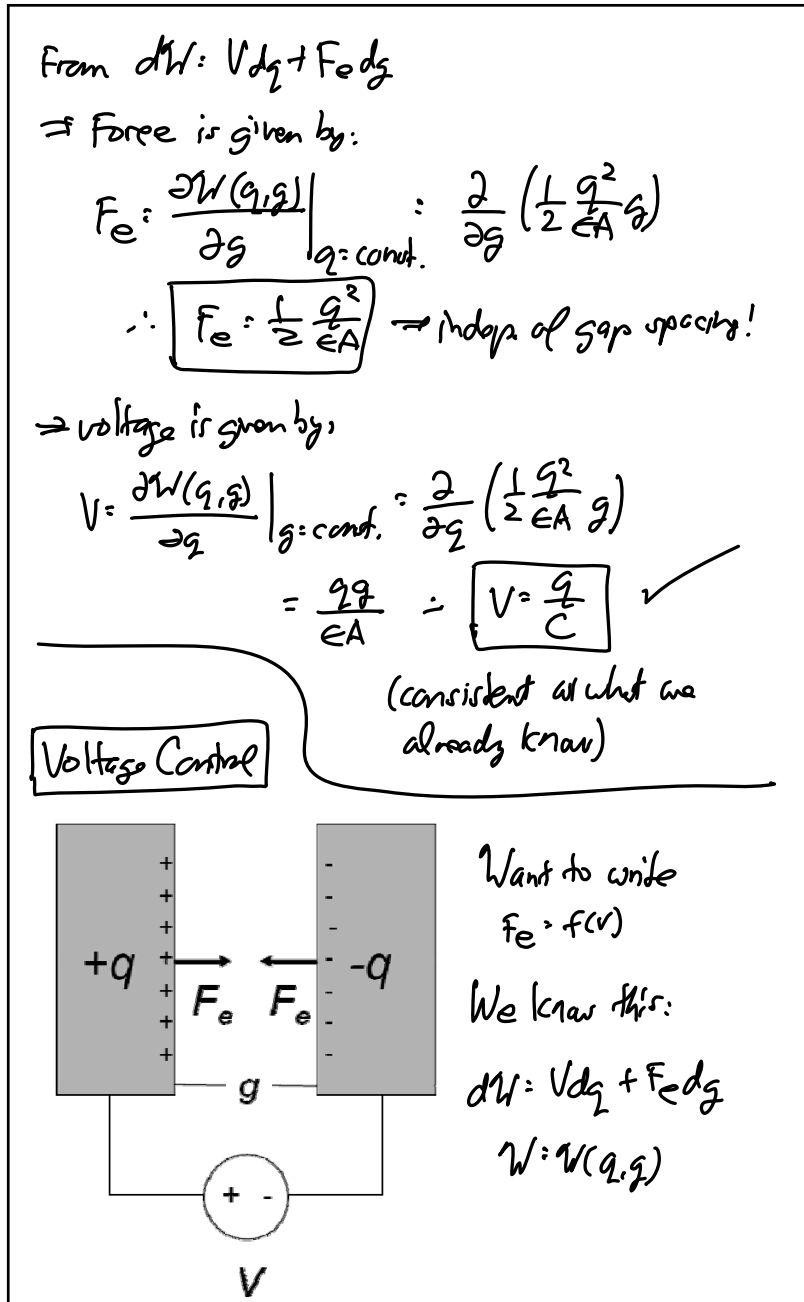 From dW = Vdq + Fe dg
⇒ Force is given by:
Fe = ∂W(q,g)/∂g |q=const. = ∂/∂g (1/2 q²/εA g)
∴ Fe = 1/2 q²/εA → indep. of gap spacing!
⇒ voltage is given by:
V = ∂W(q,g)/∂q |g=const. = ∂/∂q (1/2 q²/εA g)
= qg/εA ∴ V = q/C ✓
(consistent w/ what we
already know)
Voltage Control
+q
Fe
Fe
-q
g
+ -
V
Want to write
Fe = f(V)
We know this:
dW = Vdq + Fe dg
W = W(q,g)